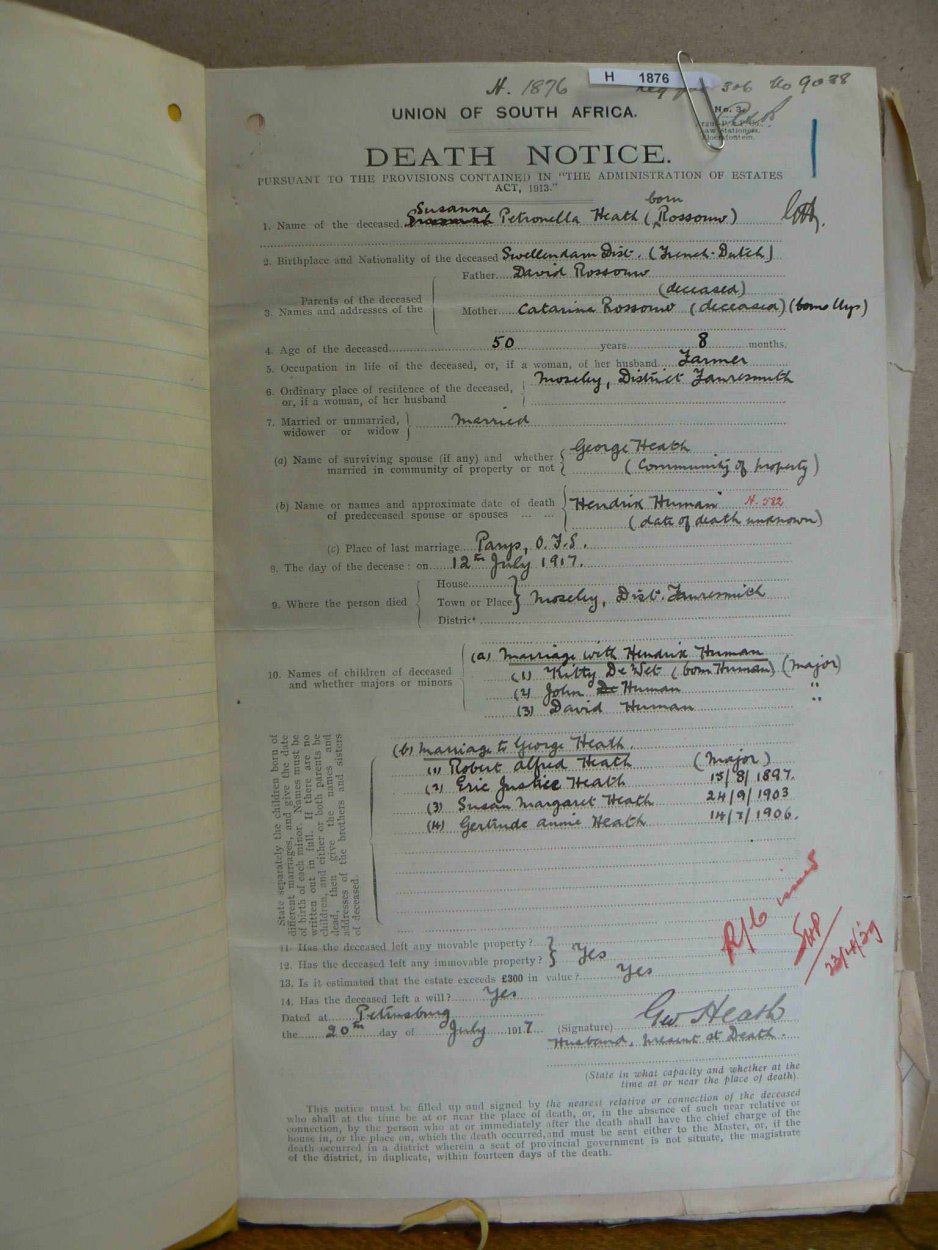 H. 1876
H 1876
306 No 9038
No. 3.
UNION OF SOUTH AFRICA.
DEATH NOTICE.
PURSUANT TO THE PROVISIONS CONTAINED IN "THE ADMINISTRATION OF ESTATES
ACT, 1913."
Susanna born
1. Name of the deceased Petronella Heath (Rossouw)
2. Birthplace and Nationality of the deceased Swellendam Dist. (French-Dutch)
Father David Rossouw
(deceased)
Parents of the deceased
3. Names and addresses of the
Mother Catarina Rossouw (deceased) (born Uys)
4. Age of the deceased 50 years 8 months.
5. Occupation in life of the deceased, or, if a woman, of her husband Farmer
6. Ordinary place of residence of the deceased, Moseley, District Fauresmith
or, if a woman, of her husband
7. Married or unmarried, Married
widower or widow
(a) Name of surviving spouse (if any) and whether George Heath
married in community of property or not (Community of property)
(b) Name or names and approximate date of death Hendrik Human H. 582
of predeceased spouse or spouses ... ... (date of death unknown)
(c) Place of last marriage Parys, O.F.S.
8. The day of the decease: on 12th July 1917.
House
9. Where the person died Town or Place Moseley, Dist. Fauresmith
District
(a) Marriage with Hendrik Human
10. Names of children of deceased (1) Kitty De Wet (born Human) (Major)
and whether majors or minors (2) John Human "
(3) David Human "
State separately the children born of
different marriages, and give the date
of birth of each minor. Names must be
written out in full. If there are no
children, and either or both parents be
dead, then give the names and
addresses of the brothers and sisters
of deceased.
(b) Marriage to George Heath.
(1) Robert Alfred Heath (Major)
(2) Eric Justice Heath 15/8/1897.
(3) Susan Margaret Heath 24/9/1903
(4) Gertrude Annie Heath 14/7/1906.
11. Has the deceased left any movable property?
12. Has the deceased left any immovable property? Yes
13. Is it estimated that the estate exceeds £300 in value? Yes
14. Has the deceased left a will? Yes
Dated at Petersburg
the 20th day of July 1917 (Signature) Geo Heath
Husband, Present at Death
(State in what capacity and whether at the
time at or near the place of death).
23/4/29
This notice must be filled up and signed by the nearest relative or connection of the deceased
who shall at the time be at or near the place of death, or, in the absence of such near relative or
connection, by the person who at or immediately after the death shall have the chief charge of the
house in, or the place on, which the death occurred, and must be sent either to the Master, or, if the
death occurred in a district wherein a seat of provincial government is not situate, the magistrate
of the district, in duplicate, within fourteen days of the death.